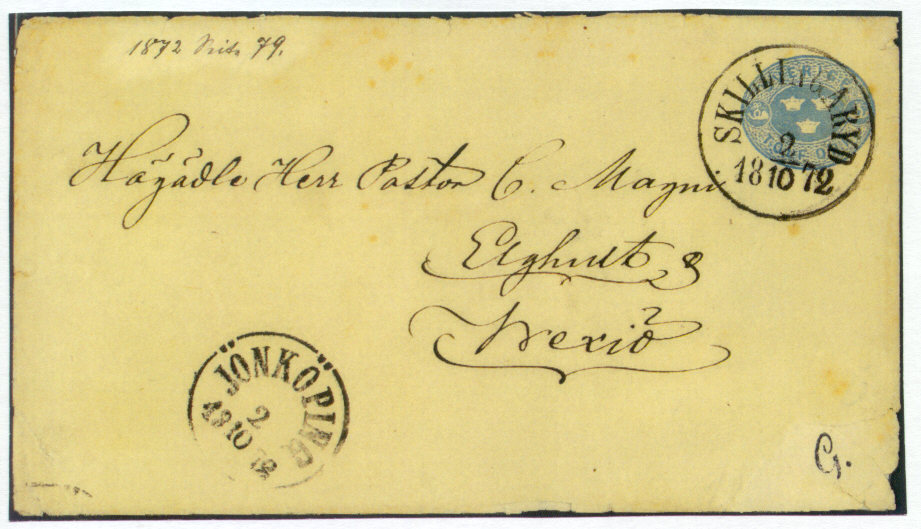 1872 79.
SKILLINGARYD
2
18 10 72
Högädle Herr Pastor C. Magni
Elghult &
Wexiö
JÖNKÖPING
2
18 10 72
G.